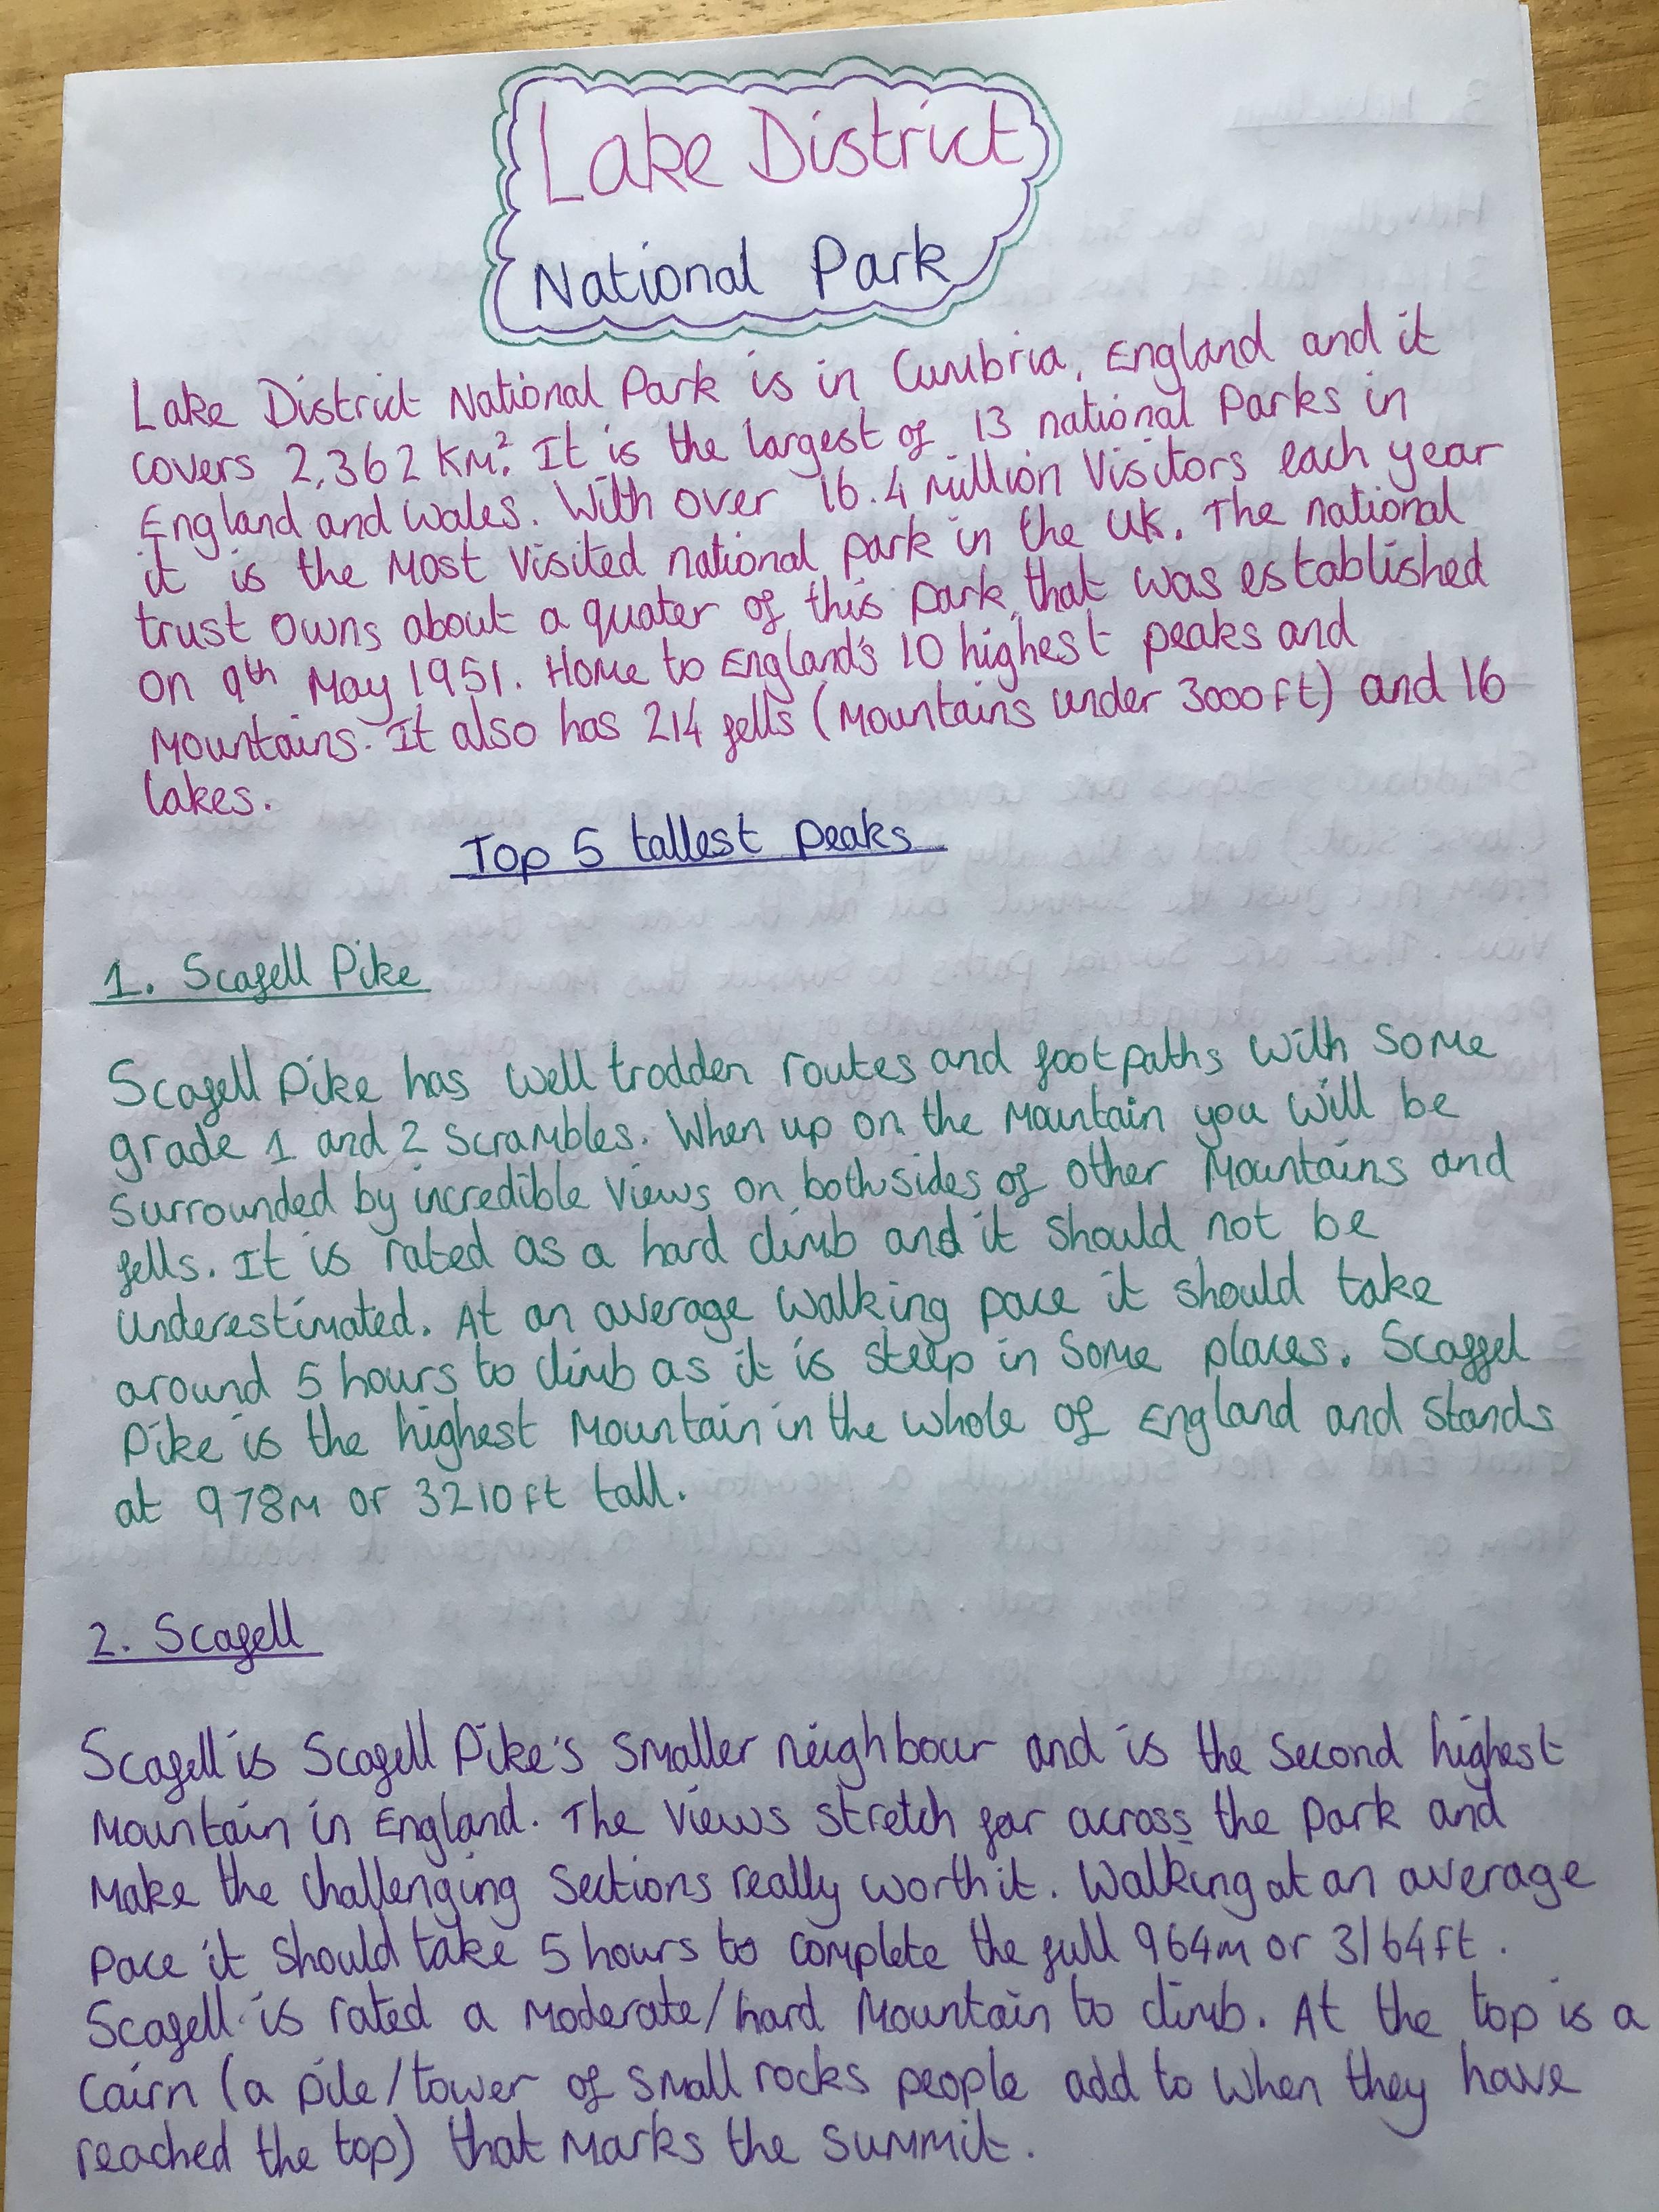 Lake District
National Park
Lake District National Park is in Cumbria, England and it
covers 2,362 KM². It is the largest of 13 national parks in
England and Wales. With over 16.4 million visitors each year
it is the most visited national park in the UK. The national
trust owns about a quater of this park, that was established
on 9th May 1951. Home to England's 10 highest peaks and
mountains. It also has 214 fells (mountains under 3000ft) and 16
lakes.
Top 5 tallest peaks
1. Scafell Pike
Scafell Pike has well trodden routes and footpaths with some
grade 1 and 2 scrambles. When up on the mountain you will be
surrounded by incredible views on both sides of other mountains and
fells. It is rated as a hard climb and it should not be
underestimated. At an average walking pace it should take
around 5 hours to climb as it is steep in some places. Scaffel
Pike is the highest mountain in the whole of England and stands
at 978m or 3210ft tall.
2. Scafell
Scafell is Scafell Pike's smaller neighbour and is the second highest
mountain in England. The views stretch far across the park and
make the challenging sections really worth it. Walking at an average
pace it should take 5 hours to complete the full 964m or 3164ft.
Scafell is rated a moderate/hard mountain to climb. At the top is a
cairn (a pile/tower of small rocks people add to when they have
reached the top) that marks the summit.